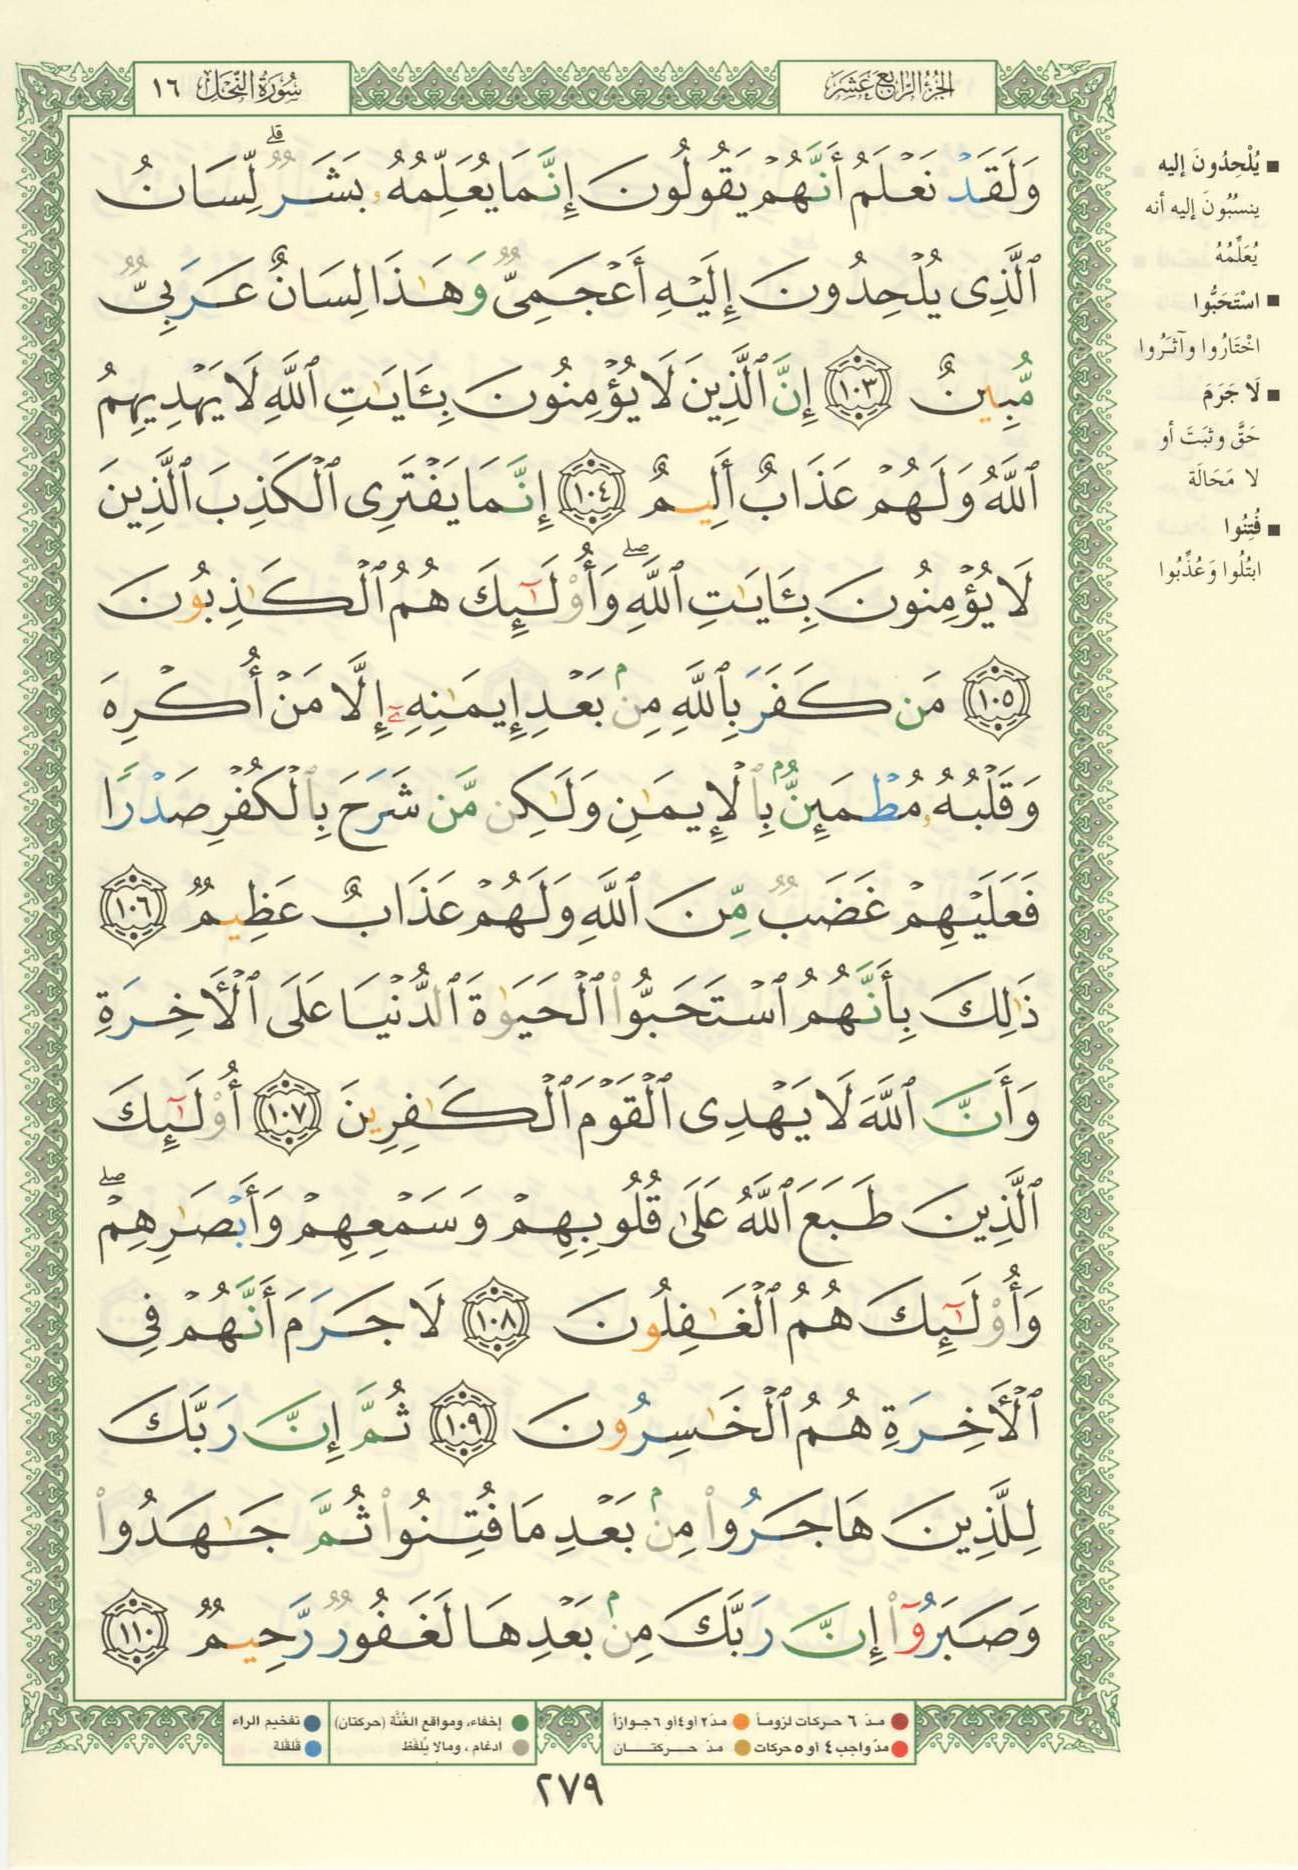 الجزء الرابع عشر
سورة النحل ١٦
وَلَقَدْ نَعْلَمُ أَنَّهُمْ يَقُولُونَ إِنَّمَا يُعَلِّمُهُۥ بَشَرٌ ۗ لِّسَانُ
ٱلَّذِى يُلْحِدُونَ إِلَيْهِ أَعْجَمِىٌّ وَهَٰذَا لِسَانٌ عَرَبِىٌّ
مُّبِينٌ ١٠٣ إِنَّ ٱلَّذِينَ لَا يُؤْمِنُونَ بِـَٔايَٰتِ ٱللَّهِ لَا يَهْدِيهِمُ
ٱللَّهُ وَلَهُمْ عَذَابٌ أَلِيمٌ ١٠٤ إِنَّمَا يَفْتَرِى ٱلْكَذِبَ ٱلَّذِينَ
لَا يُؤْمِنُونَ بِـَٔايَٰتِ ٱللَّهِ ۖ وَأُو۟لَٰٓئِكَ هُمُ ٱلْكَٰذِبُونَ
١٠٥ مَن كَفَرَ بِٱللَّهِ مِنۢ بَعْدِ إِيمَٰنِهِۦٓ إِلَّا مَنْ أُكْرِهَ
وَقَلْبُهُۥ مُطْمَئِنٌّۢ بِٱلْإِيمَٰنِ وَلَٰكِن مَّن شَرَحَ بِٱلْكُفْرِ صَدْرًا
فَعَلَيْهِمْ غَضَبٌ مِّنَ ٱللَّهِ وَلَهُمْ عَذَابٌ عَظِيمٌ ١٠٦
ذَٰلِكَ بِأَنَّهُمُ ٱسْتَحَبُّوا۟ ٱلْحَيَوٰةَ ٱلدُّنْيَا عَلَى ٱلْأَخِرَةِ
وَأَنَّ ٱللَّهَ لَا يَهْدِى ٱلْقَوْمَ ٱلْكَٰفِرِينَ ١٠٧ أُو۟لَٰٓئِكَ
ٱلَّذِينَ طَبَعَ ٱللَّهُ عَلَىٰ قُلُوبِهِمْ وَسَمْعِهِمْ وَأَبْصَٰرِهِمْ ۖ
وَأُو۟لَٰٓئِكَ هُمُ ٱلْغَٰفِلُونَ ١٠٨ لَا جَرَمَ أَنَّهُمْ فِى
ٱلْأَخِرَةِ هُمُ ٱلْخَٰسِرُونَ ١٠٩ ثُمَّ إِنَّ رَبَّكَ
لِلَّذِينَ هَاجَرُوا۟ مِنۢ بَعْدِ مَا فُتِنُوا۟ ثُمَّ جَٰهَدُوا۟
وَصَبَرُوٓا۟ إِنَّ رَبَّكَ مِنۢ بَعْدِهَا لَغَفُورٌ رَّحِيمٌ ١١٠
■ يُلْحِدُونَ إليه
ينسُبُونَ إليه أنه
يُعَلِّمُهُ
■ اسْتَحَبُّوا
اخْتَارُوا وآثَرُوا
■ لَا جَرَمَ
حَقَّ وثبَتَ أو
لا مَحَالَة
■ فُتِنُوا
ابتُلُوا وَعُذِّبُوا
مدّ ٦ حركات لزوماً
مدّ ٢ أو ٤ أو ٦ جوازاً
إخفاء، ومواقع الغُنَّة (حركتان)
تفخيم الراء
مدّ واجب ٤ أو ٥ حركات
مدّ حركتان
ادغام، ومالا يُلفَظ
قلقلة
٢٧٩